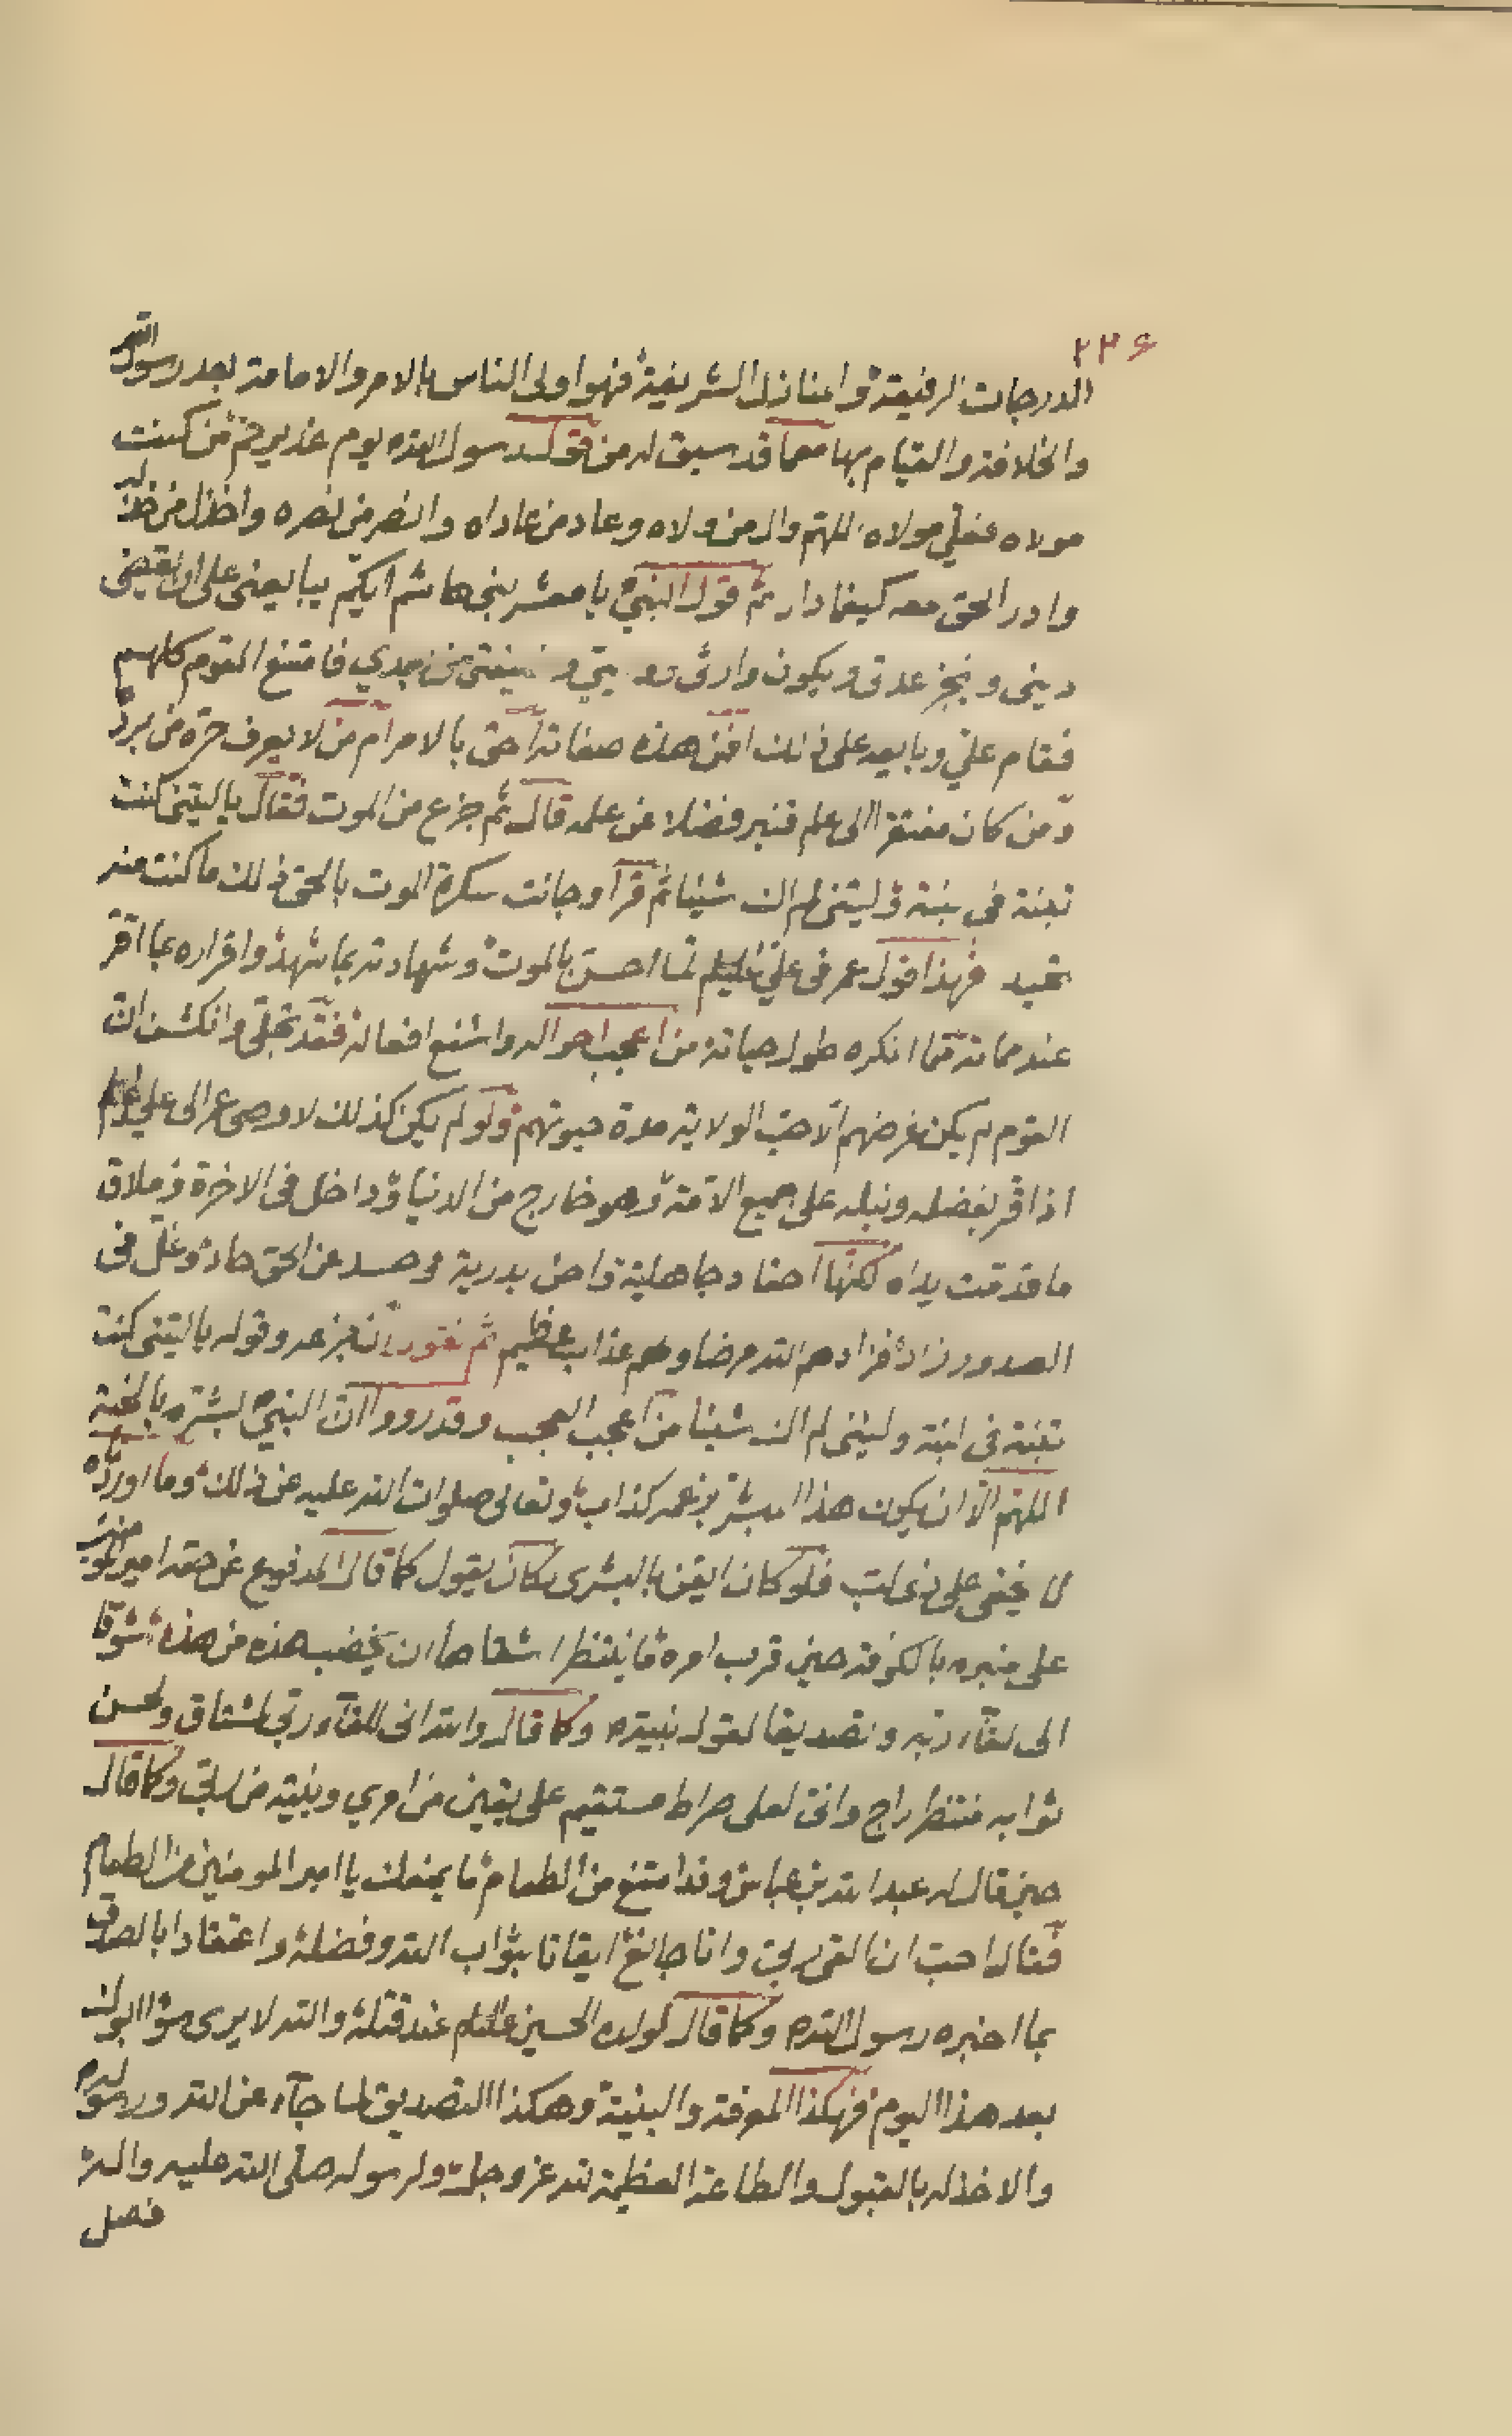 ٢٣۶
الدرجات الرفيعة والمنازل الشريفة فهو اولى الناس بالامر والامامة بعد رسول الله
والخلافة والقيام بها مع ما قد سبق له من قول رسول الله ص يوم غدير خم من كنت
مولاه فعلي مولاه اللهم وال من ولاه وعاد من عاداه وانصر من نصره واخذل من خذله
وادر الحق معه كيفما دار ثم قول النبي ص يا معشر بني هاشم ايكم يبايعني على ان يقضى
ديني وينجز عدتي ويكون وارثي من بعدي فامتنع القوم كلهم
فقام علي وبايعه على ذلك افمن هذه صفاته احق بالامر ام من لا يعرف حره من برده
ومن كان مفتقرا الى علم قنبر فضلا عن علمه قال ثم جزع من الموت فقال يا ليتني كنت
تبنة في لبنة وليتني لم اك شيئا ثم قرأ وجائت سكرة الموت بالحق ذلك ما كنت منه
تحيد فهذا قول عمر في علي عليلم لما احسن بالموت وشهادته بما شهد واقراره بما اقر
عند مماته مما انكره طول حياته من اعجب احواله واشنع افعاله فقد تجلى وانكشف ان
القوم لم يكن غرضهم الا حب الولاية مدة حيوتهم ولو لم يكن كذلك لاوصى عمر الى علي عليلم
اذا اقر بفضله ونبله على جميع الامة وهو خارج من الدنيا وداخل في الاخرة وملاق
ما قدمت يداه لكنها احقاد جاهلية واحن بدرية وحسد عن الحق حاد وغل في
الصدور زاد فزادهم الله مرضا ولهم عذاب عظيم ثم نقول ان جزع عمر وقوله يا ليتني كنت
تبنة في لبنة وليتني لم اك شيئا من اعجب العجب وقد رووا ان النبي ص بشره بالجنة
اللهم الا ان يكون هذا المبشر بزعمه كذاب وتعالى صلوات الله عليه عن ذلك وما اورده
لا يخفى على ذي لب فلو كان ايقن بالبشرى لكان يقول كما قال المدفوع عن حقه امير المؤمنين
على منبره بالكوفة حين قرب امره ما ينتظر اشقاها ان يخضب هذه من هذه شوقا
الى لقاء ربه وتصديقا لقول نبيه ص وكما قال والله اني للقاء ربي لمشتاق ولحسن
ثوابه منتظر راج واني لعلى صراط مستقيم على يقين من امري وبينة من ربي وكما قال
حين قال له عبد الله بن عباس وقد امتنع من الطعام ما يمنعك يا امير المومنين من الطعام
فقال احب ان القى ربي وانا جائع ايقانا بثواب الله وفضله واعتقادا بالصدق
بما اخبره رسول الله ص وكما قال لولده الحسين عليلم عند قتله والله لا يرى سؤا ابوك
بعد هذا اليوم فهكذا المعرفة والبينة وهكذا التصديق لما جاء عن الله ورسوله ص
والاخذ له بالقبول والطاعة العظيمة لله عز وجل ولرسوله صلى الله عليه واله
فصل